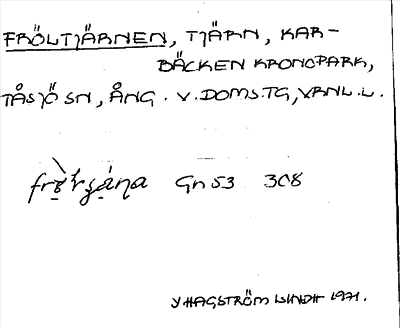 FRÖLTJÄRNEN, TJÄRN, KAR-
BÄCKEN KRONOPARK,
TÅSJÖ SN, ÅNG. V. DOMS.TG, VRNL. L.
Gn 53 308
Y HAGSTRÖM LINDH 1971.